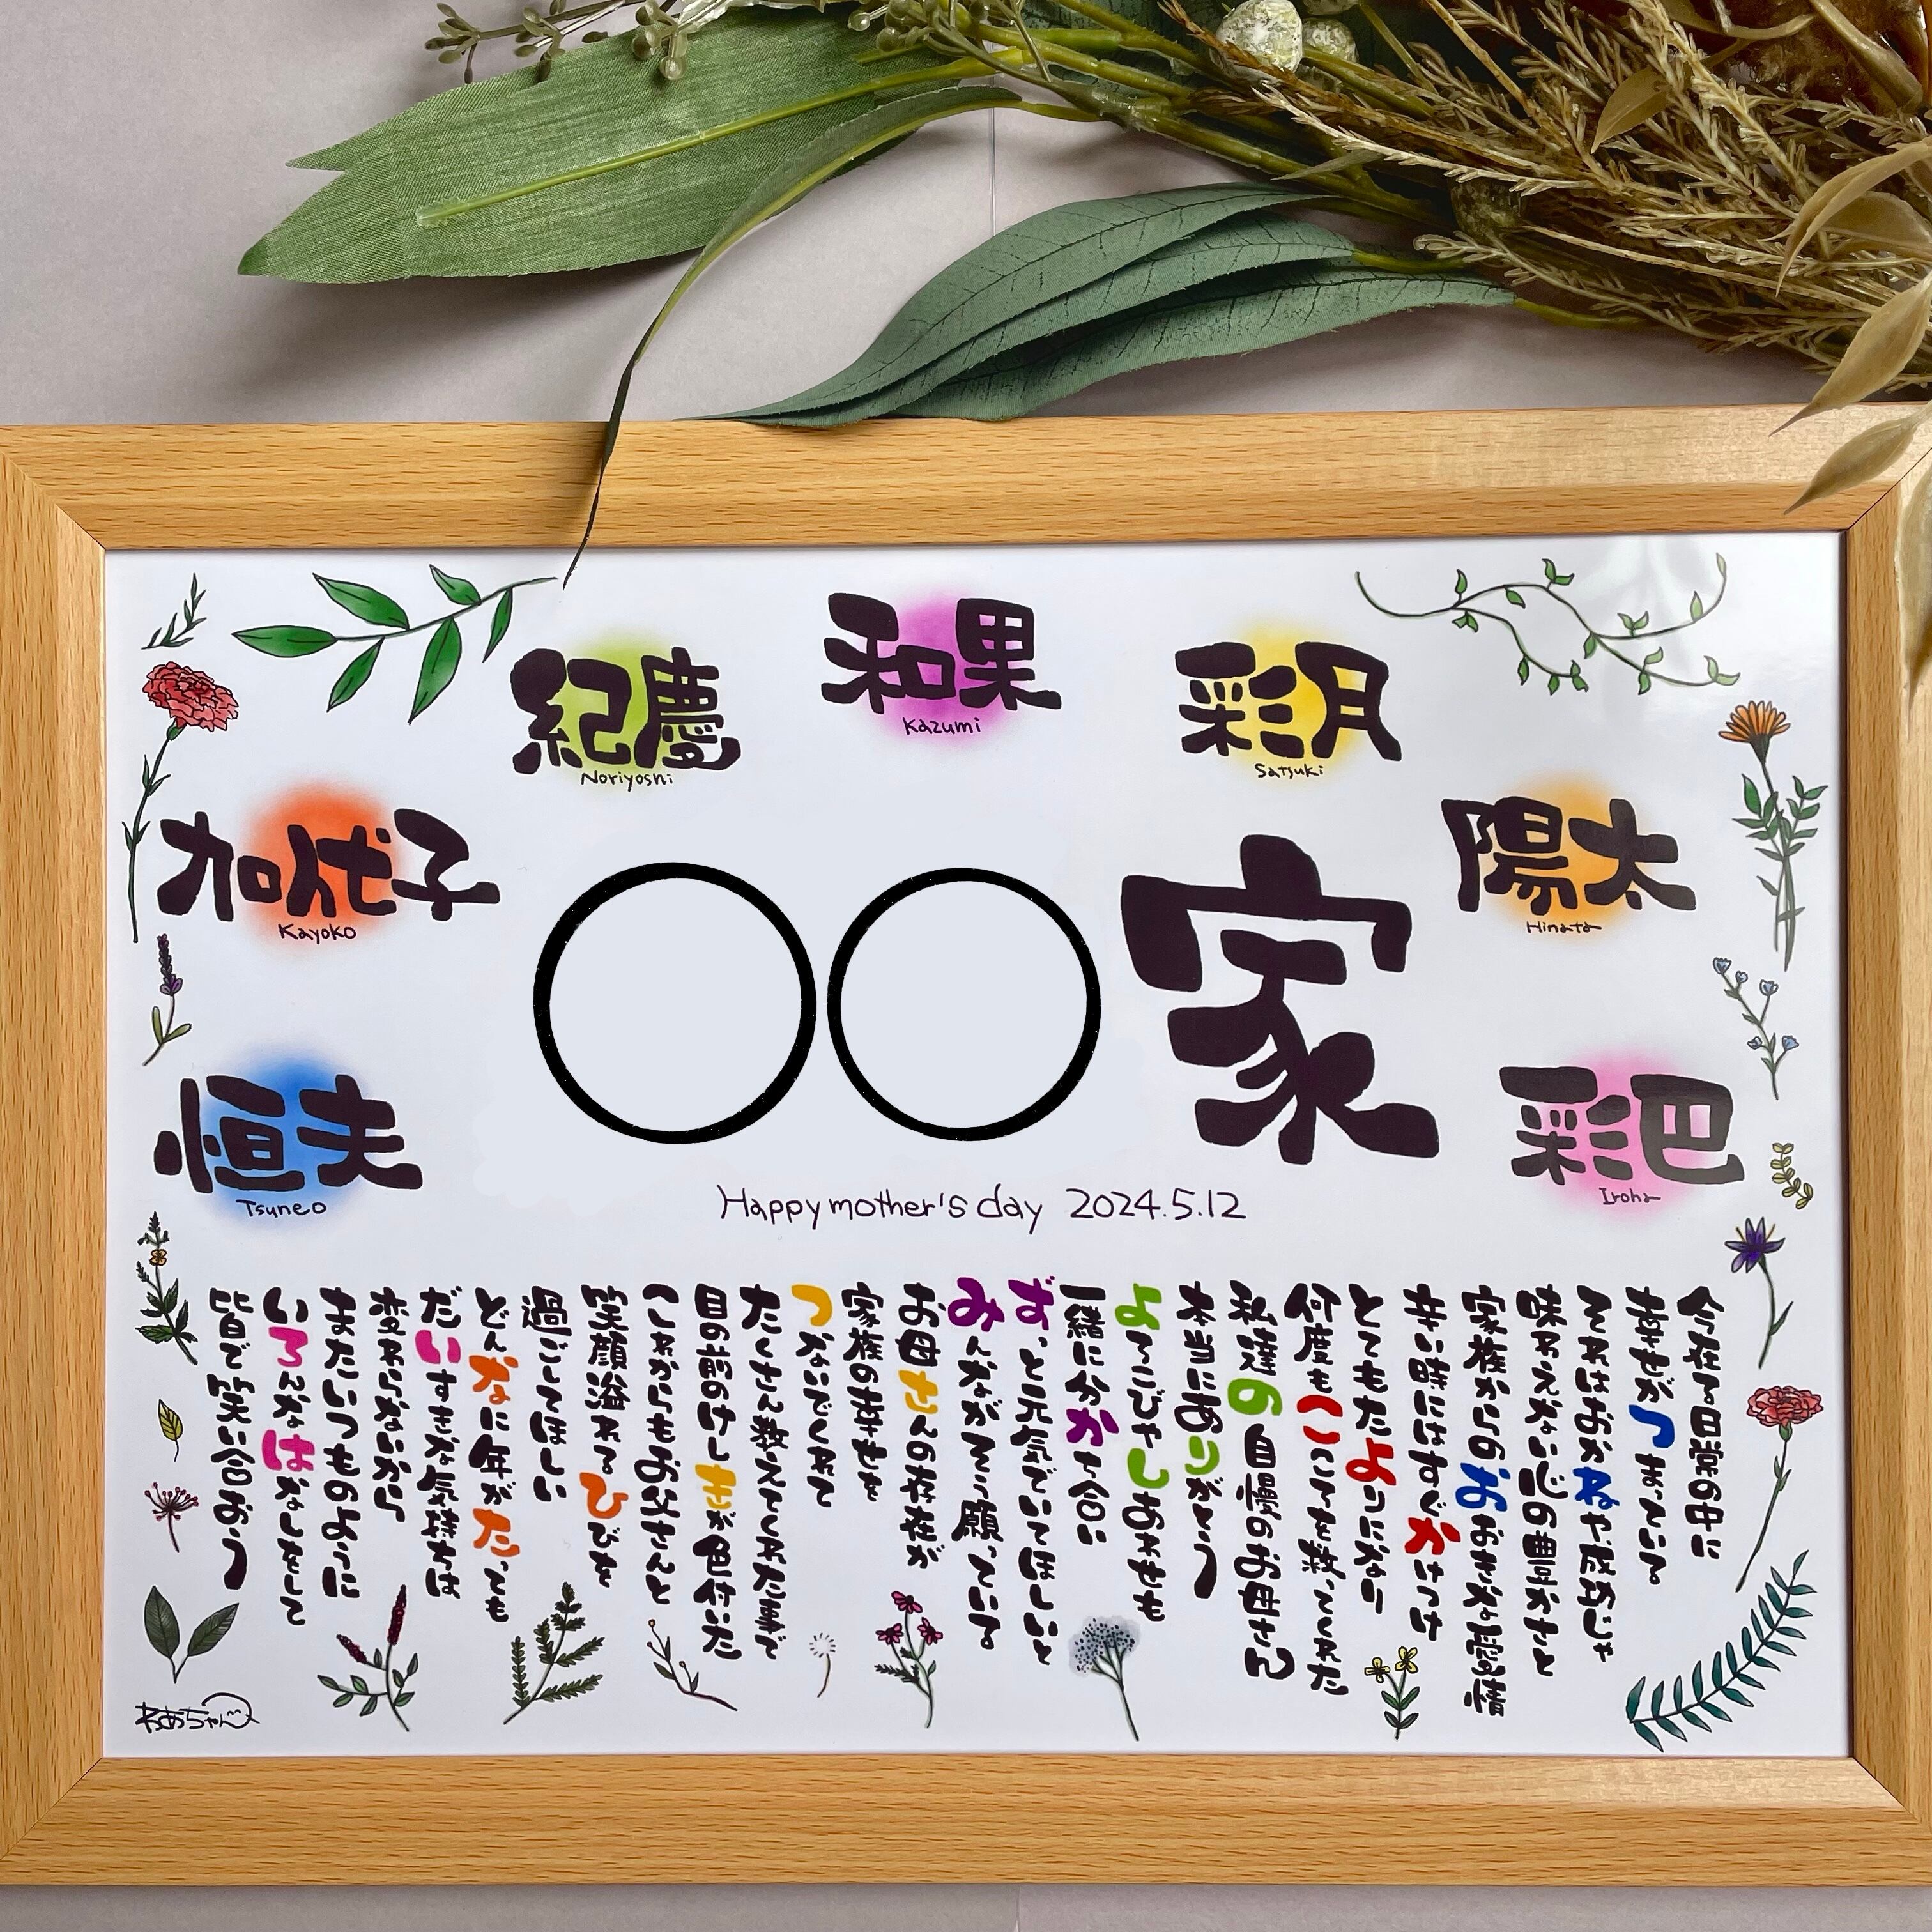 和果
Kazumi
紀慶
Noriyoshi
彩月
Satsuki
加代子
Kayoko
陽太
Hinata
恒夫
Tsuneo
彩巴
Iroha
〇〇家
Happy mother's day 2024.5.12
今在る日常の中に
幸せがつまっている
それはおかねや成功じゃ
味わえない心の豊かさと
家族からのおおきな愛情
辛い時にはすぐかけつけ
とてもたよりになり
何度もこころを救ってくれた
私達の自慢のお母さん
本当にありがとう
よろこびやしあわせも
一緒に分かち合い
ずっと元気でいてほしいと
みんながそう願っている
お母さんの存在が
家族の幸せを
つないでくれて
たくさん教えてくれた事で
目の前のけしきが色付いた
これからもお父さんと
笑顔溢れるひびを
過ごしてほしい
どんなに年がたっても
だいすきな気持ちは
変わらないから
またいつものように
いろんなはなしをして
皆で笑い合おう
わおちゃん